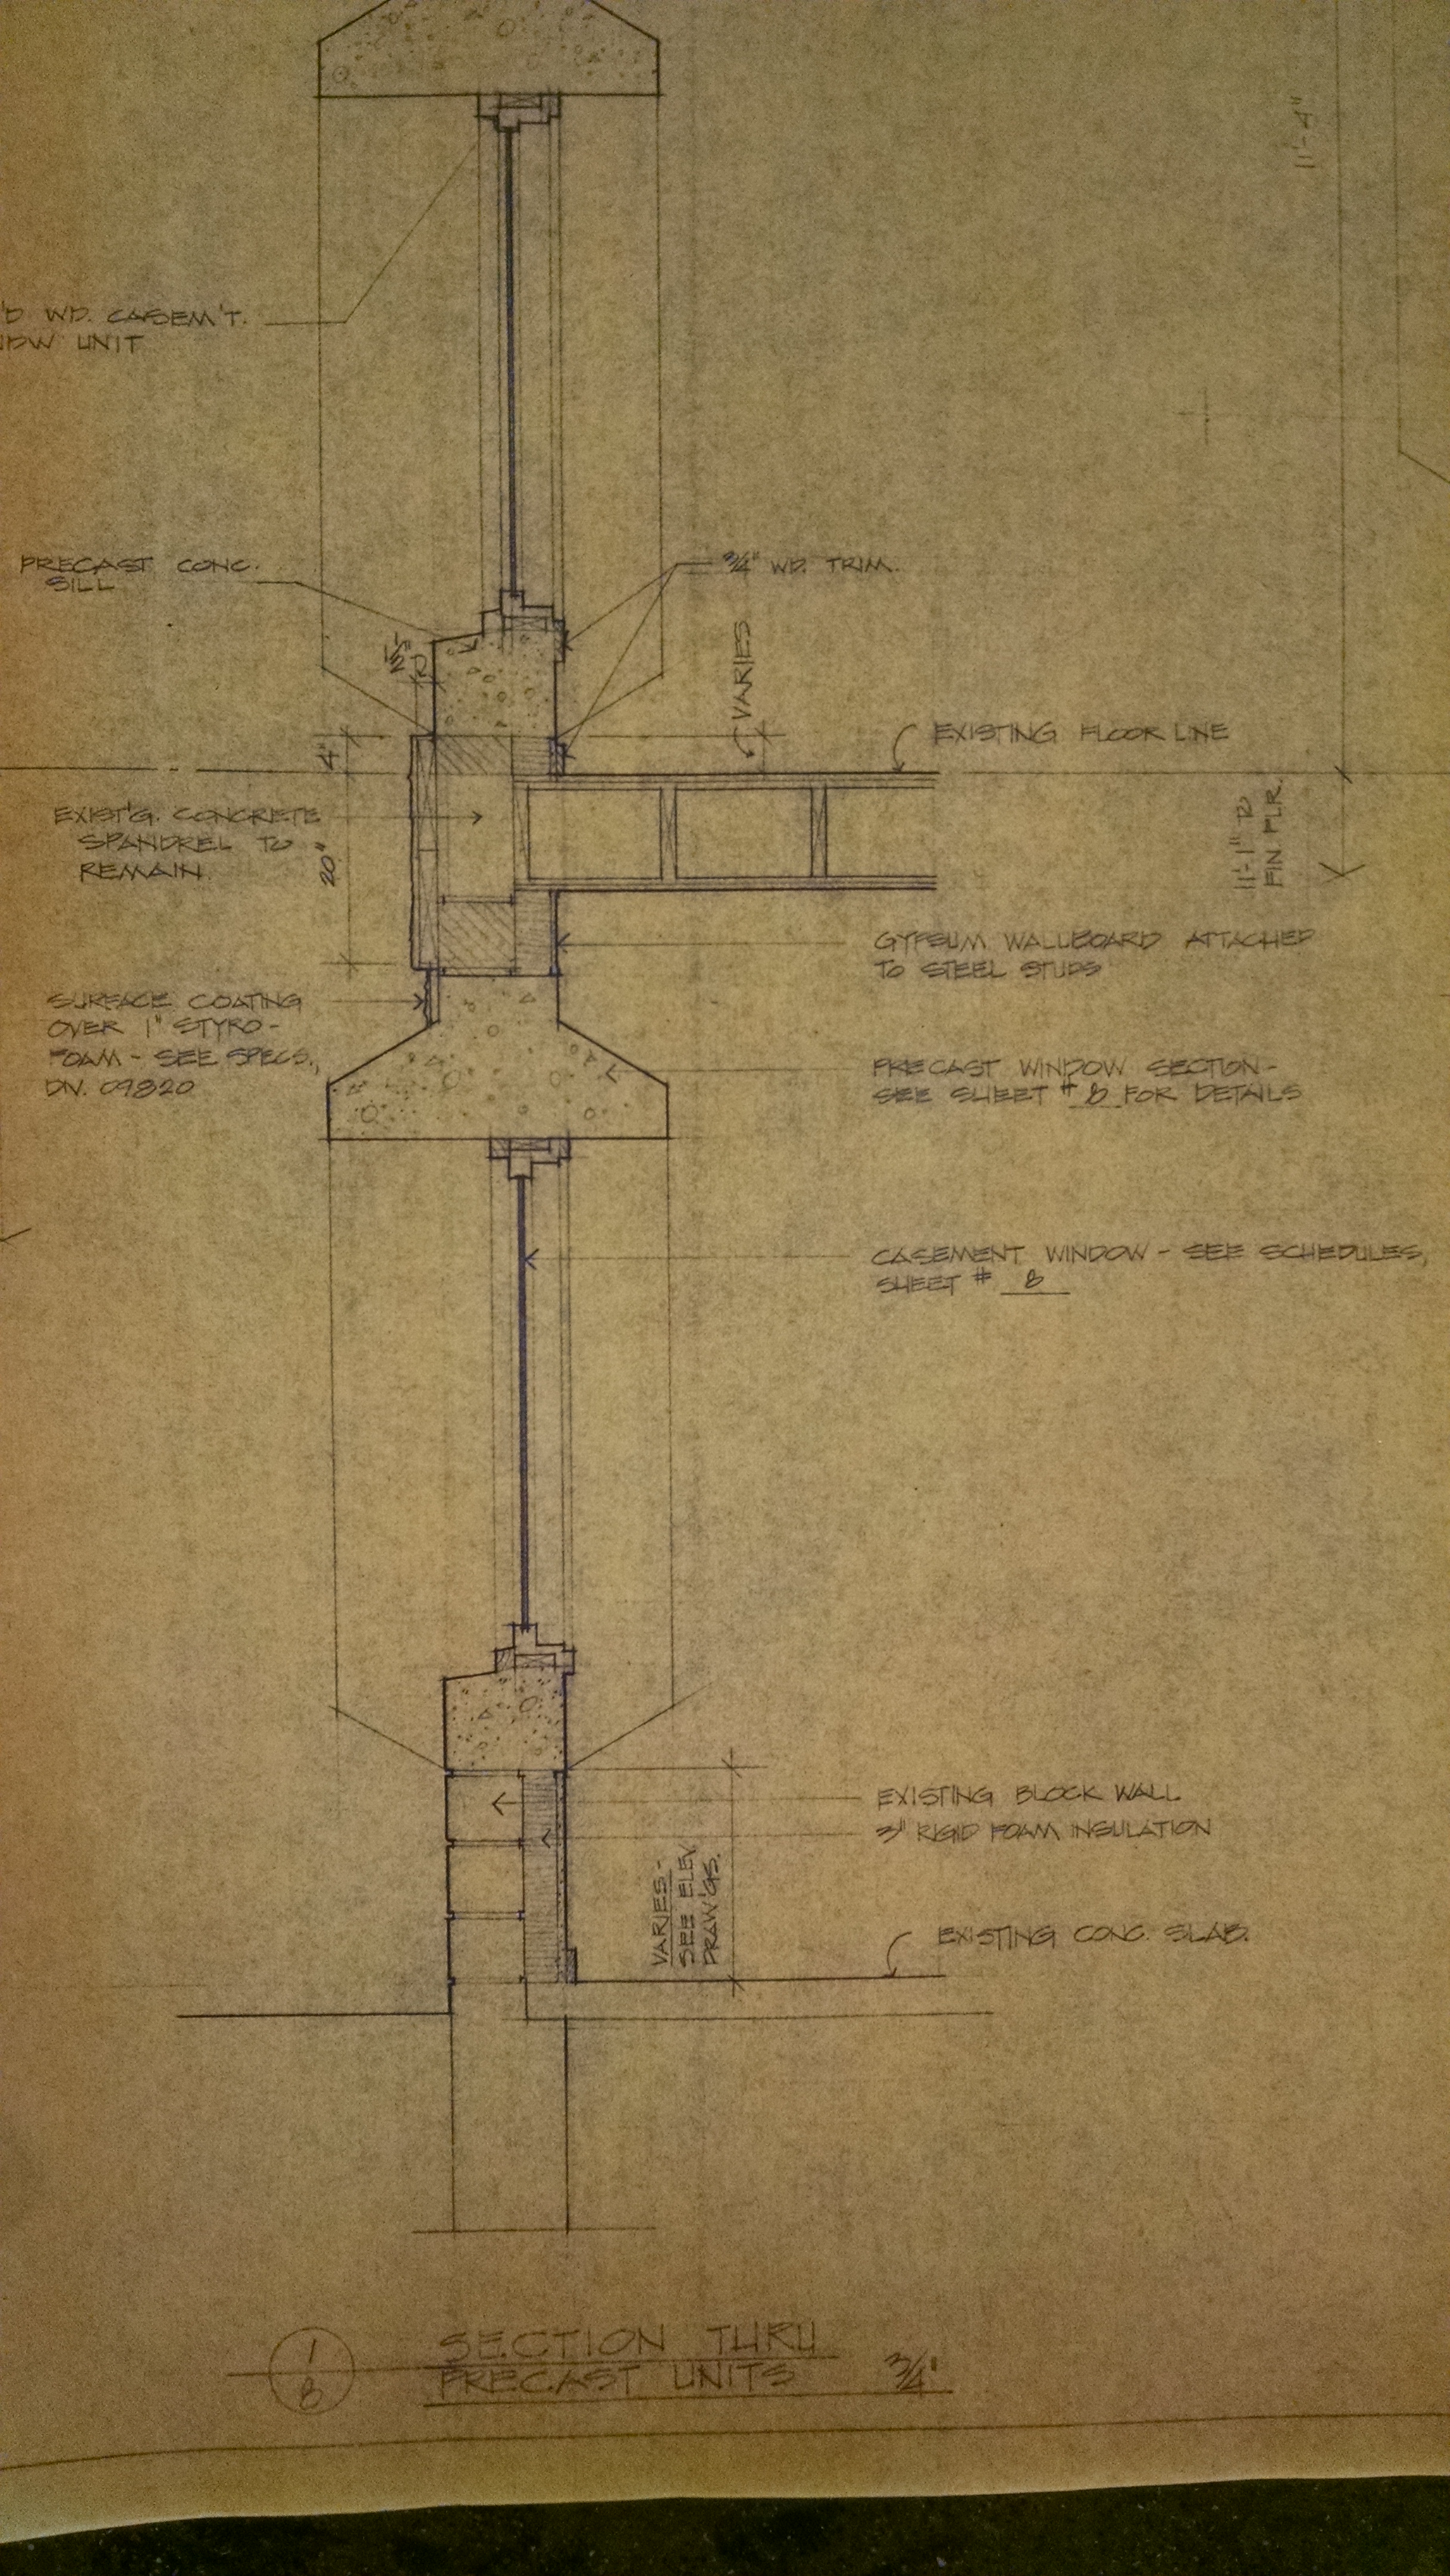 11'-4"
'D WD. CASEM'T.
NDW UNIT
PRECAST CONC.
SILL
3/4" WD. TRIM.
1 1/2"
VARIES
EXISTING FLOOR LINE
4"
EXIST'G. CONCRETE
SPANDREL TO
REMAIN.
20"
11'-1" TO
FIN. FLR.
GYPSUM WALLBOARD ATTACHED
TO STEEL STUDS
SURFACE COATING
OVER 1" STYRO-
FOAM - SEE SPECS.,
DIV. 09820
PRECAST WINDOW SECTION -
SEE SHEET # 8 FOR DETAILS
CASEMENT WINDOW - SEE SCHEDULES,
SHEET # 8
EXISTING BLOCK WALL
3" RIGID FOAM INSULATION
VARIES -
SEE ELEV.
DRAW'GS.
EXISTING CONC. SLAB.
1
8
SECTION THRU
PRECAST UNITS 3/4"